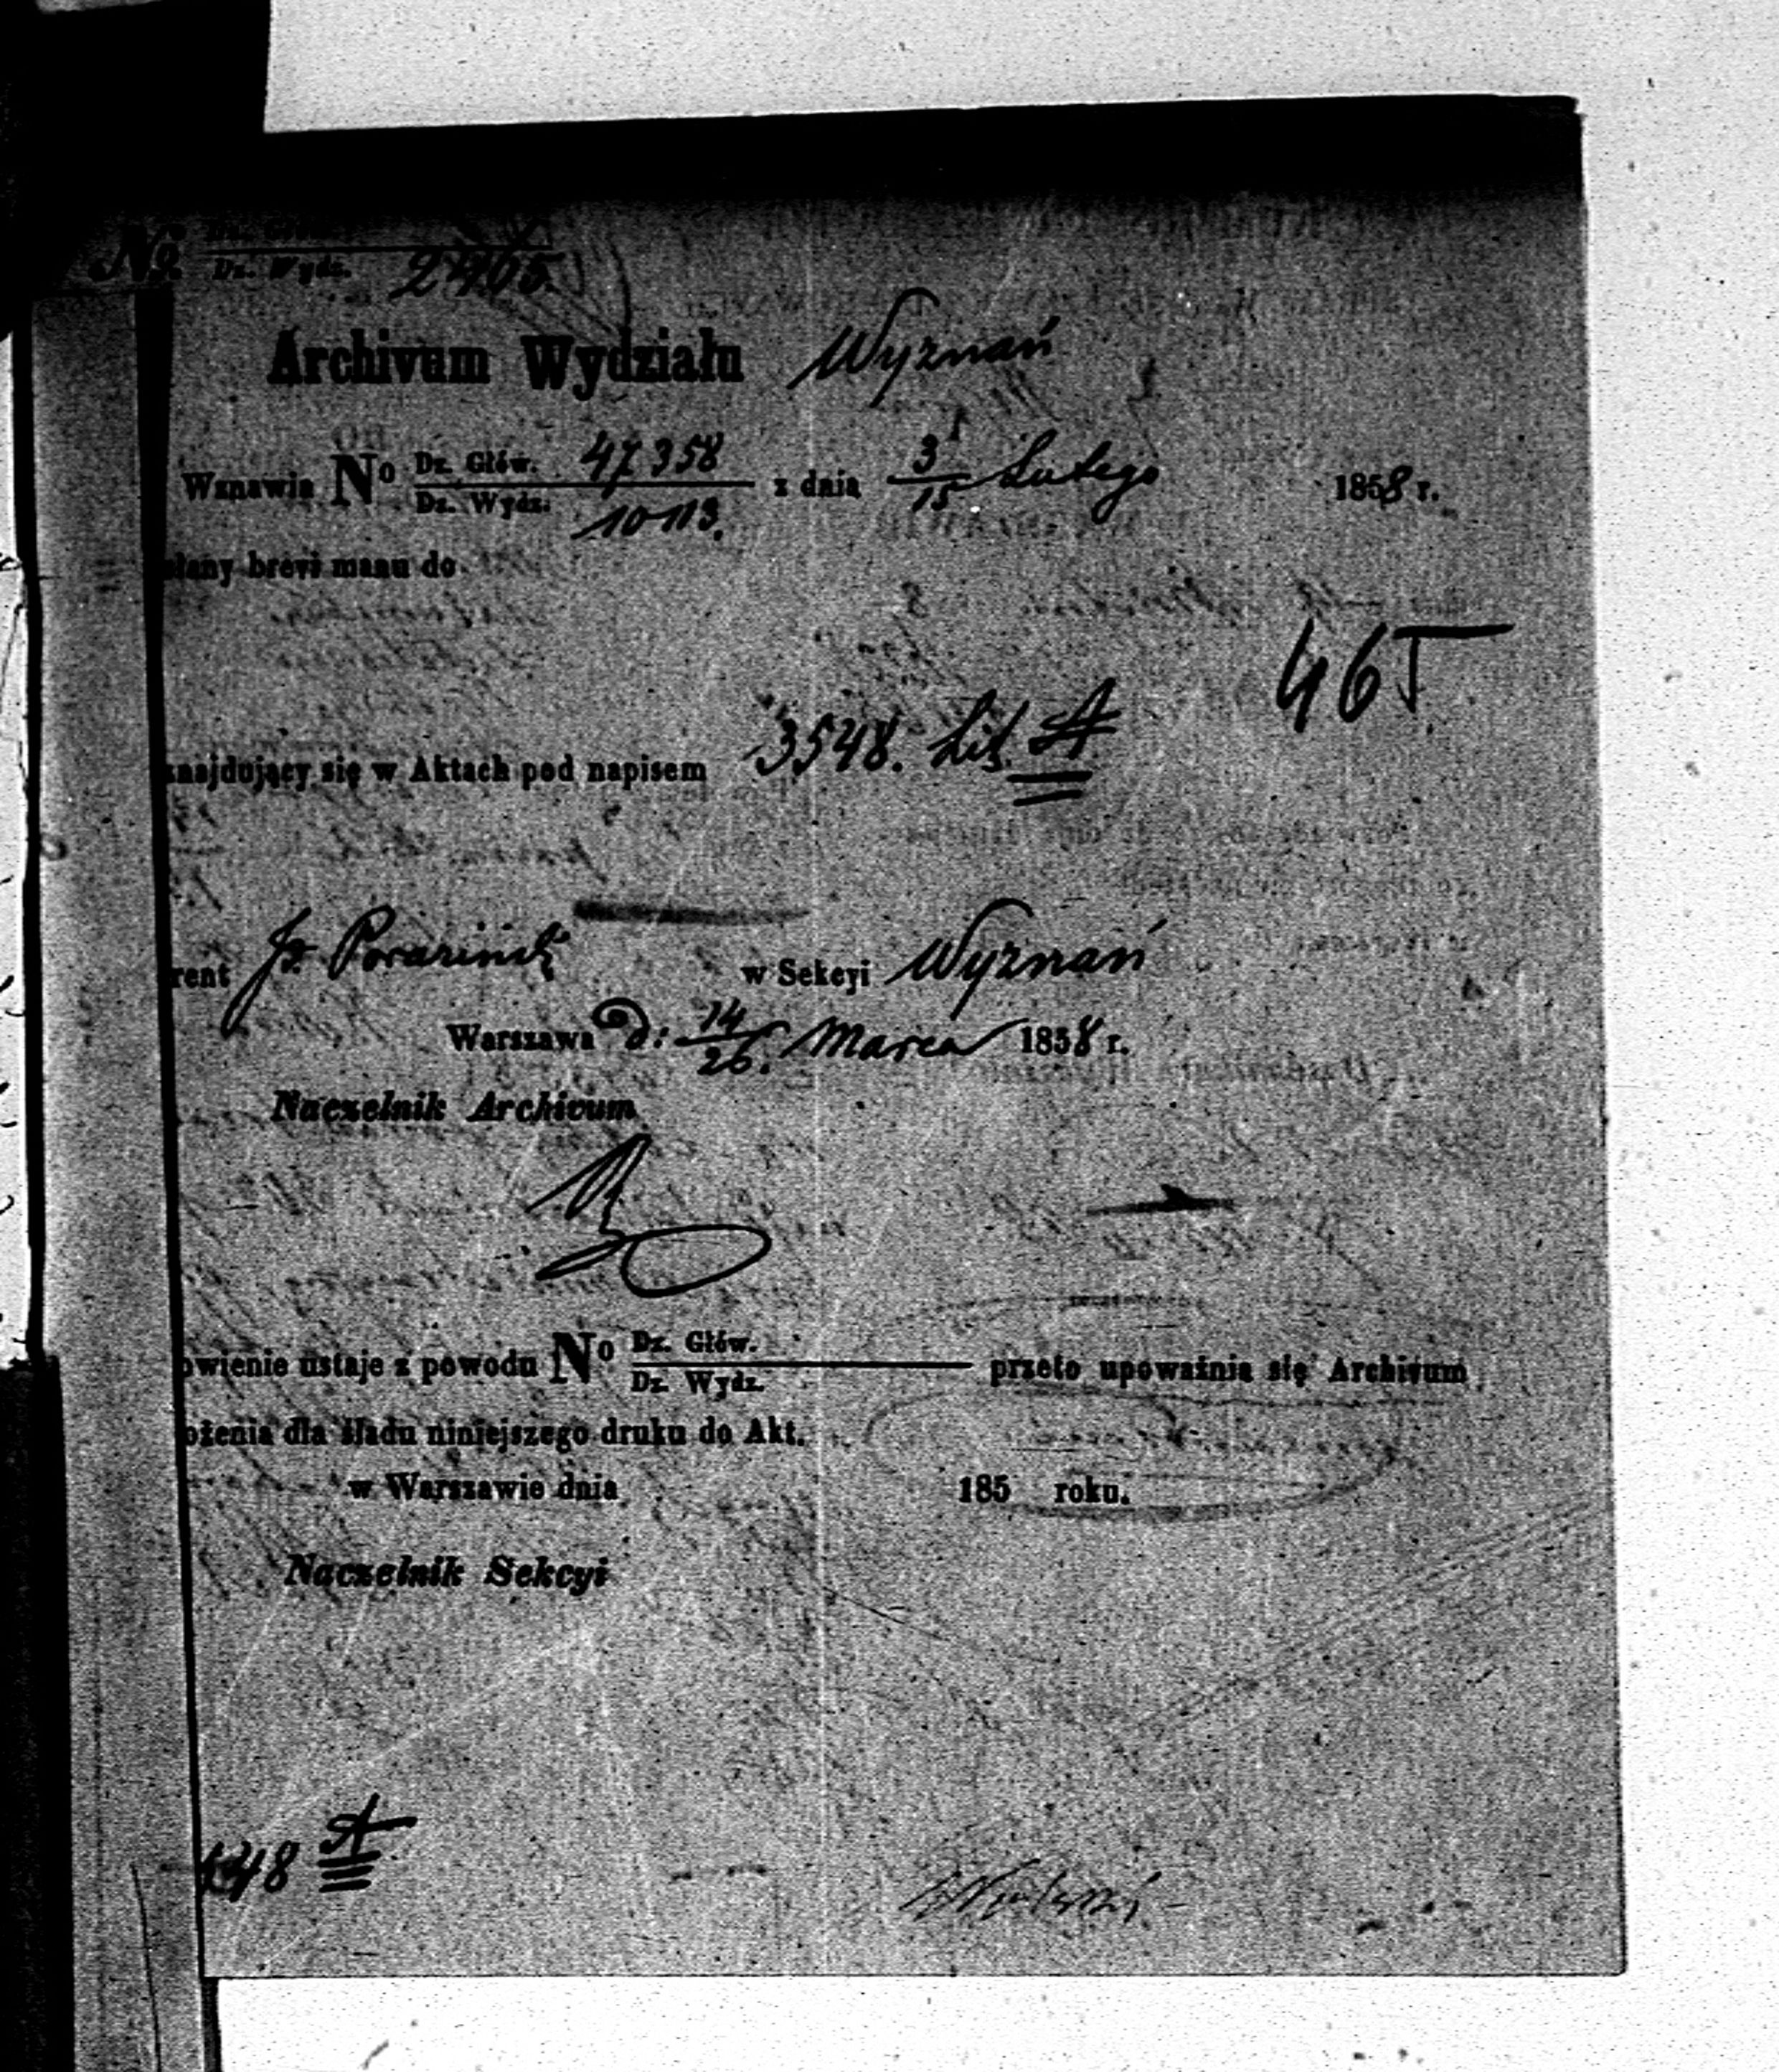 No Dz. Głów.
Dz. Wydz. 2465.
Archivum Wydziału Wyznań
Wznawia No Dz. Głów. 47358 z dnia 3/15 Lutego 1858 r.
Dz. Wydz. 10113.
słany brevi manu do
465
znajdujący się w Aktach pod napisem 3548. Lit. A
rent Porazińsk w Sekcyi Wyznań
Warszawa d: 14/26. Marca 1858 r.
Naczelnik Archivum
owienie ustaje z powodu No Dz. Głów. przeto upoważnia się Archivum
Dz. Wydz.
ożenia dla śladu niniejszego druku do Akt.
w Warszawie dnia 185 roku.
Naczelnik Sekcyi
48 A